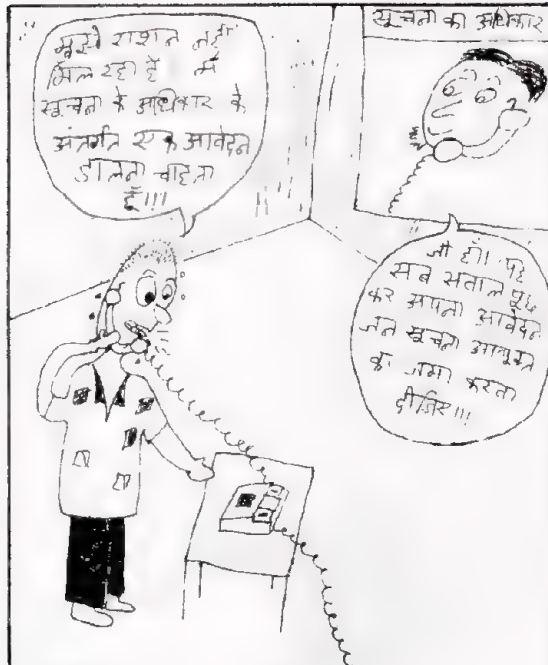 मुझे राशन नहीं
मिल रहा है मैं
सूचना के अधिकार के
अंतर्गत एक आवेदन
डालना चाहता
हूँ!!!
सूचना का अधिकार
जी हाँ। यह
सब सवाल पूछ
कर अपना आवेदन
जन सूचना आयुक्त
को जमा करवा
दीजिए!!!